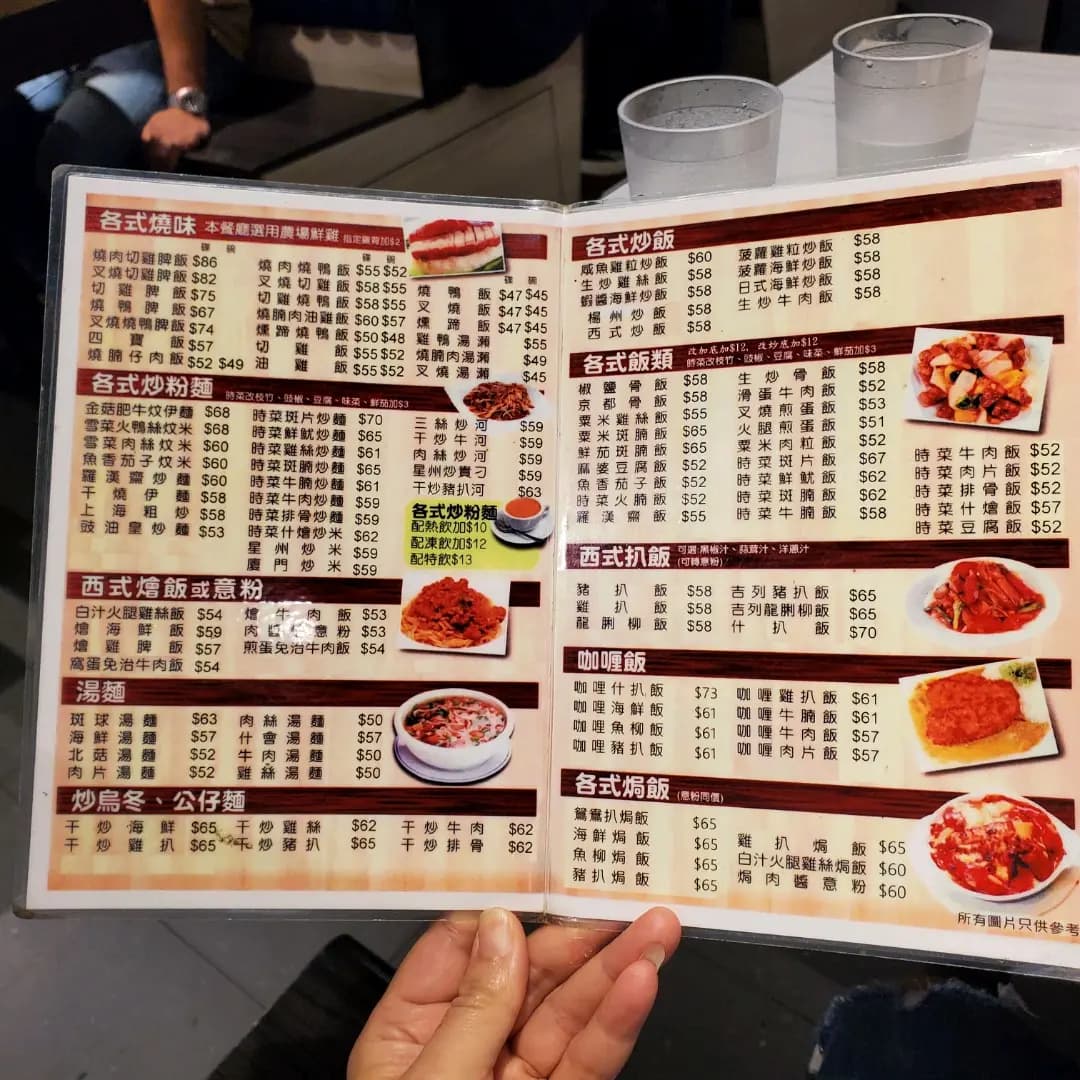 各式燒味 本餐廳選用農場鮮雞 指定雞脾加$2
碟 碗
燒肉切雞脾飯 $86
叉燒切雞脾飯 $82
切雞脾飯 $75
燒鴨脾飯 $67
叉燒燒鴨脾飯 $74
四寶飯 $57
燒腩仔肉飯 $52 $49
碟 碗
燒肉燒鴨飯 $55 $52
叉燒切雞飯 $58 $55
切雞燒鴨飯 $58 $55
燒腩肉油雞飯 $60 $57
燻蹄燒鴨飯 $50 $48
切雞飯 $55 $52
油雞飯 $55 $52
碟 碗
燒鴨飯 $47 $45
叉燒飯 $47 $45
燻蹄飯 $47 $45
雞鴨湯瀨 $55
燒腩肉湯瀨 $49
叉燒湯瀨 $45
各式炒粉麵 時菜改枝竹、豉椒、豆腐、味菜、鮮茄加$3
金菇肥牛炆伊麵 $68
雪菜火鴨絲炆米 $68
雪菜肉絲炆米 $60
魚香茄子炆米 $60
羅漢齋炒麵 $60
干燒伊麵 $58
上海粗炒 $58
豉油皇炒麵 $53
時菜斑片炒麵 $70
時菜鮮魷炒麵 $65
時菜雞絲炒麵 $61
時菜斑腩炒麵 $65
時菜牛腩炒麵 $61
時菜牛肉炒麵 $59
時菜排骨炒麵 $59
時菜什燴炒米 $62
星州炒米 $59
廈門炒米 $59
三絲炒河 $59
干炒牛河 $59
肉絲炒河 $59
星州炒貴刁 $59
干炒豬扒河 $63
各式炒粉麵
配熱飲加$10
配凍飲加$12
配特飲$13
西式燴飯或意粉
白汁火腿雞絲飯 $54
燴海鮮飯 $59
燴雞脾飯 $57
窩蛋免治牛肉飯 $54
燴牛肉飯 $53
肉醬意粉 $53
煎蛋免治牛肉飯 $54
湯麵
斑球湯麵 $63
海鮮湯麵 $57
北菇湯麵 $52
肉片湯麵 $52
肉絲湯麵 $50
什會湯麵 $57
牛肉湯麵 $50
雞絲湯麵 $50
炒烏冬、公仔麵
干炒海鮮 $65
干炒雞扒 $65
干炒雞絲 $62
干炒豬扒 $65
干炒牛肉 $62
干炒排骨 $62
各式炒飯
咸魚雞粒炒飯 $60
生炒雞絲飯 $58
蝦醬海鮮炒飯 $58
楊州炒飯 $58
西式炒飯 $58
菠蘿雞粒炒飯 $58
菠蘿海鮮炒飯 $58
日式海鮮炒飯 $58
生炒牛肉飯 $58
各式飯類 改加底加$12，改炒底加$12
時菜改枝竹、豉椒、豆腐、味菜、鮮茄加$3
椒鹽骨飯 $58
京都骨飯 $58
粟米雞絲飯 $55
粟米斑腩飯 $65
鮮茄斑腩飯 $65
麻婆豆腐飯 $52
魚香茄子飯 $52
時菜火腩飯 $52
羅漢齋飯 $55
生炒骨飯 $58
滑蛋牛肉飯 $52
叉燒煎蛋飯 $53
火腿煎蛋飯 $51
粟米肉粒飯 $52
時菜斑片飯 $67
時菜鮮魷飯 $62
時菜斑腩飯 $62
時菜牛腩飯 $58
時菜牛肉飯 $52
時菜肉片飯 $52
時菜排骨飯 $52
時菜什燴飯 $57
時菜豆腐飯 $52
西式扒飯 可選:黑椒汁、蒜茸汁、洋蔥汁
(可轉意粉)
豬扒飯 $58
雞扒飯 $58
龍脷柳飯 $58
吉列豬扒飯 $65
吉列龍脷柳飯 $65
什扒飯 $70
咖喱飯
咖哩什扒飯 $73
咖哩海鮮飯 $61
咖哩魚柳飯 $61
咖哩豬扒飯 $61
咖喱雞扒飯 $61
咖喱牛腩飯 $61
咖喱牛肉飯 $57
咖喱肉片飯 $57
各式焗飯 (意粉同價)
鴛鴦扒焗飯 $65
海鮮焗飯 $65
魚柳焗飯 $65
豬扒焗飯 $65
雞扒焗飯 $65
白汁火腿雞絲焗飯 $60
焗肉醬意粉 $60
所有圖片只供參考